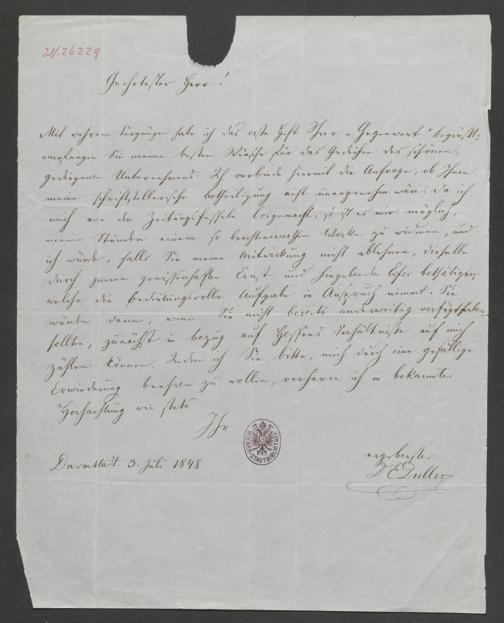 I.N. 26229
Geehrtester Herr!
Mit wahrem Vergnügen habe ich das erste Heft Ihrer „Gegenwart" begrüßt;
empfangen Sie meine besten Wünsche für das Gedeihen des schönen,
gediegenen Unternehmens. Ich verbinde hiermit die Anfrage, ob Ihnen
meine schriftstellerische Betheiligung nicht unangenehm wäre. Da ich
mich von den Zeitungsfesseln losgemacht, so ist es mir möglich,
meine Stunden einem so beachtenswerthen Werke zu widmen, und
ich würde, falls Sie meine Mitwirkung nicht ablehnen, dieselbe
durch gewissenhaften Ernst und hingebende Liebe bethätigen,
welche die bedeutungsvolle Aufgabe in Anspruch nimmt. Sie
würden dann, wenn Sie nicht bereits anderweitig verfügt haben
sollten, zunächst in bezug auf Hessens Verhältnisse auf mich
zählen können. Indem ich Sie bitte, mich durch eine gefällige
Erwiederung beehren zu wollen, verharre ich in bekannter
Hochachtung wie stets
Ihr
WIENER STADTBIBLIOTHEK
Darmstadt. 3. Juli 1848
ergebenster
E Duller